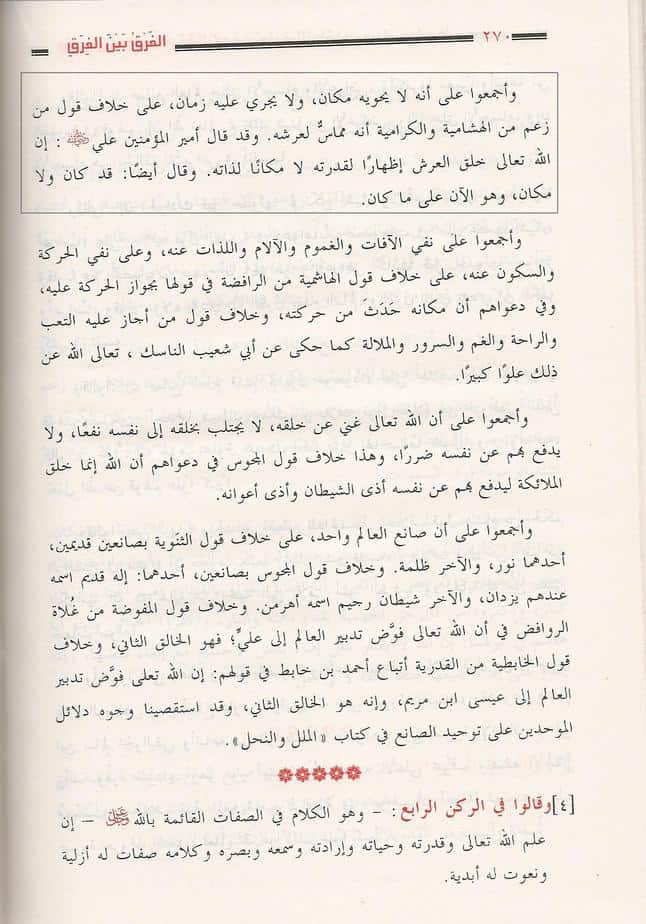 ٢٧٠ الفَرْقُ بَيْنَ الفِرَقِ
وأجمعوا على أنه لا يحويه مكان، ولا يجري عليه زمان، على خلاف قول من
زعم من الهشامية والكرامية أنه مماسٌّ لعرشه. وقد قال أمير المؤمنين علي ﵁: إن
الله تعالى خلق العرش إظهارًا لقدرته لا مكانًا لذاته. وقال أيضًا: قد كان ولا
مكان، وهو الآن على ما كان.
وأجمعوا على نفي الآفات والغموم والآلام واللذات عنه، وعلى نفي الحركة
والسكون عنه، على خلاف قول الهاشمية من الرافضة في قولها بجواز الحركة عليه،
وفي دعواهم أن مكانه حَدَثَ من حركته، وخلاف قول من أجاز عليه التعب
والراحة والغم والسرور والملالة كما حكى عن أبي شعيب الناسك ، تعالى الله عن
ذلك علوًا كبيرًا.
وأجمعوا على أن الله تعالى غني عن خلقه، لا يجتلب بخلقه إلى نفسه نفعًا، ولا
يدفع بهم عن نفسه ضررًا، وهذا خلاف قول المجوس في دعواهم أن الله إنما خلق
الملائكة ليدفع بهم عن نفسه أذى الشيطان وأذى أعوانه.
وأجمعوا على أن صانع العالم واحد، على خلاف قول الثنَوية بصانعين قديمين،
أحدهما نور، والآخر ظلمة. وخلاف قول المجوس بصانعين، أحدهما: إله قديم اسمه
عندهم يزدان، والآخر شيطان رجيم اسمه أهرمن. وخلاف قول المفوضة من غُلاة
الروافض في أن الله تعالى فوَّض تدبير العالم إلى عليٍّ؛ فهو الخالق الثاني، وخلاف
قول الخابطية من القدرية أتباع أحمد بن خابط في قولهم: إن الله تعلى فوَّض تدبير
العالم إلى عيسى ابن مريم، وإنه هو الخالق الثاني، وقد استقصينا وجوه دلائل
الموحدين على توحيد الصانع في كتاب «الملل والنحل».
[٤]وقالوا في الركن الرابع: – وهو الكلام في الصفات القائمة بالله ﷿ – إن
علم الله تعالى وقدرته وحياته وإرادته وسمعه وبصره وكلامه صفات له أزلية
ونعوت له أبدية.